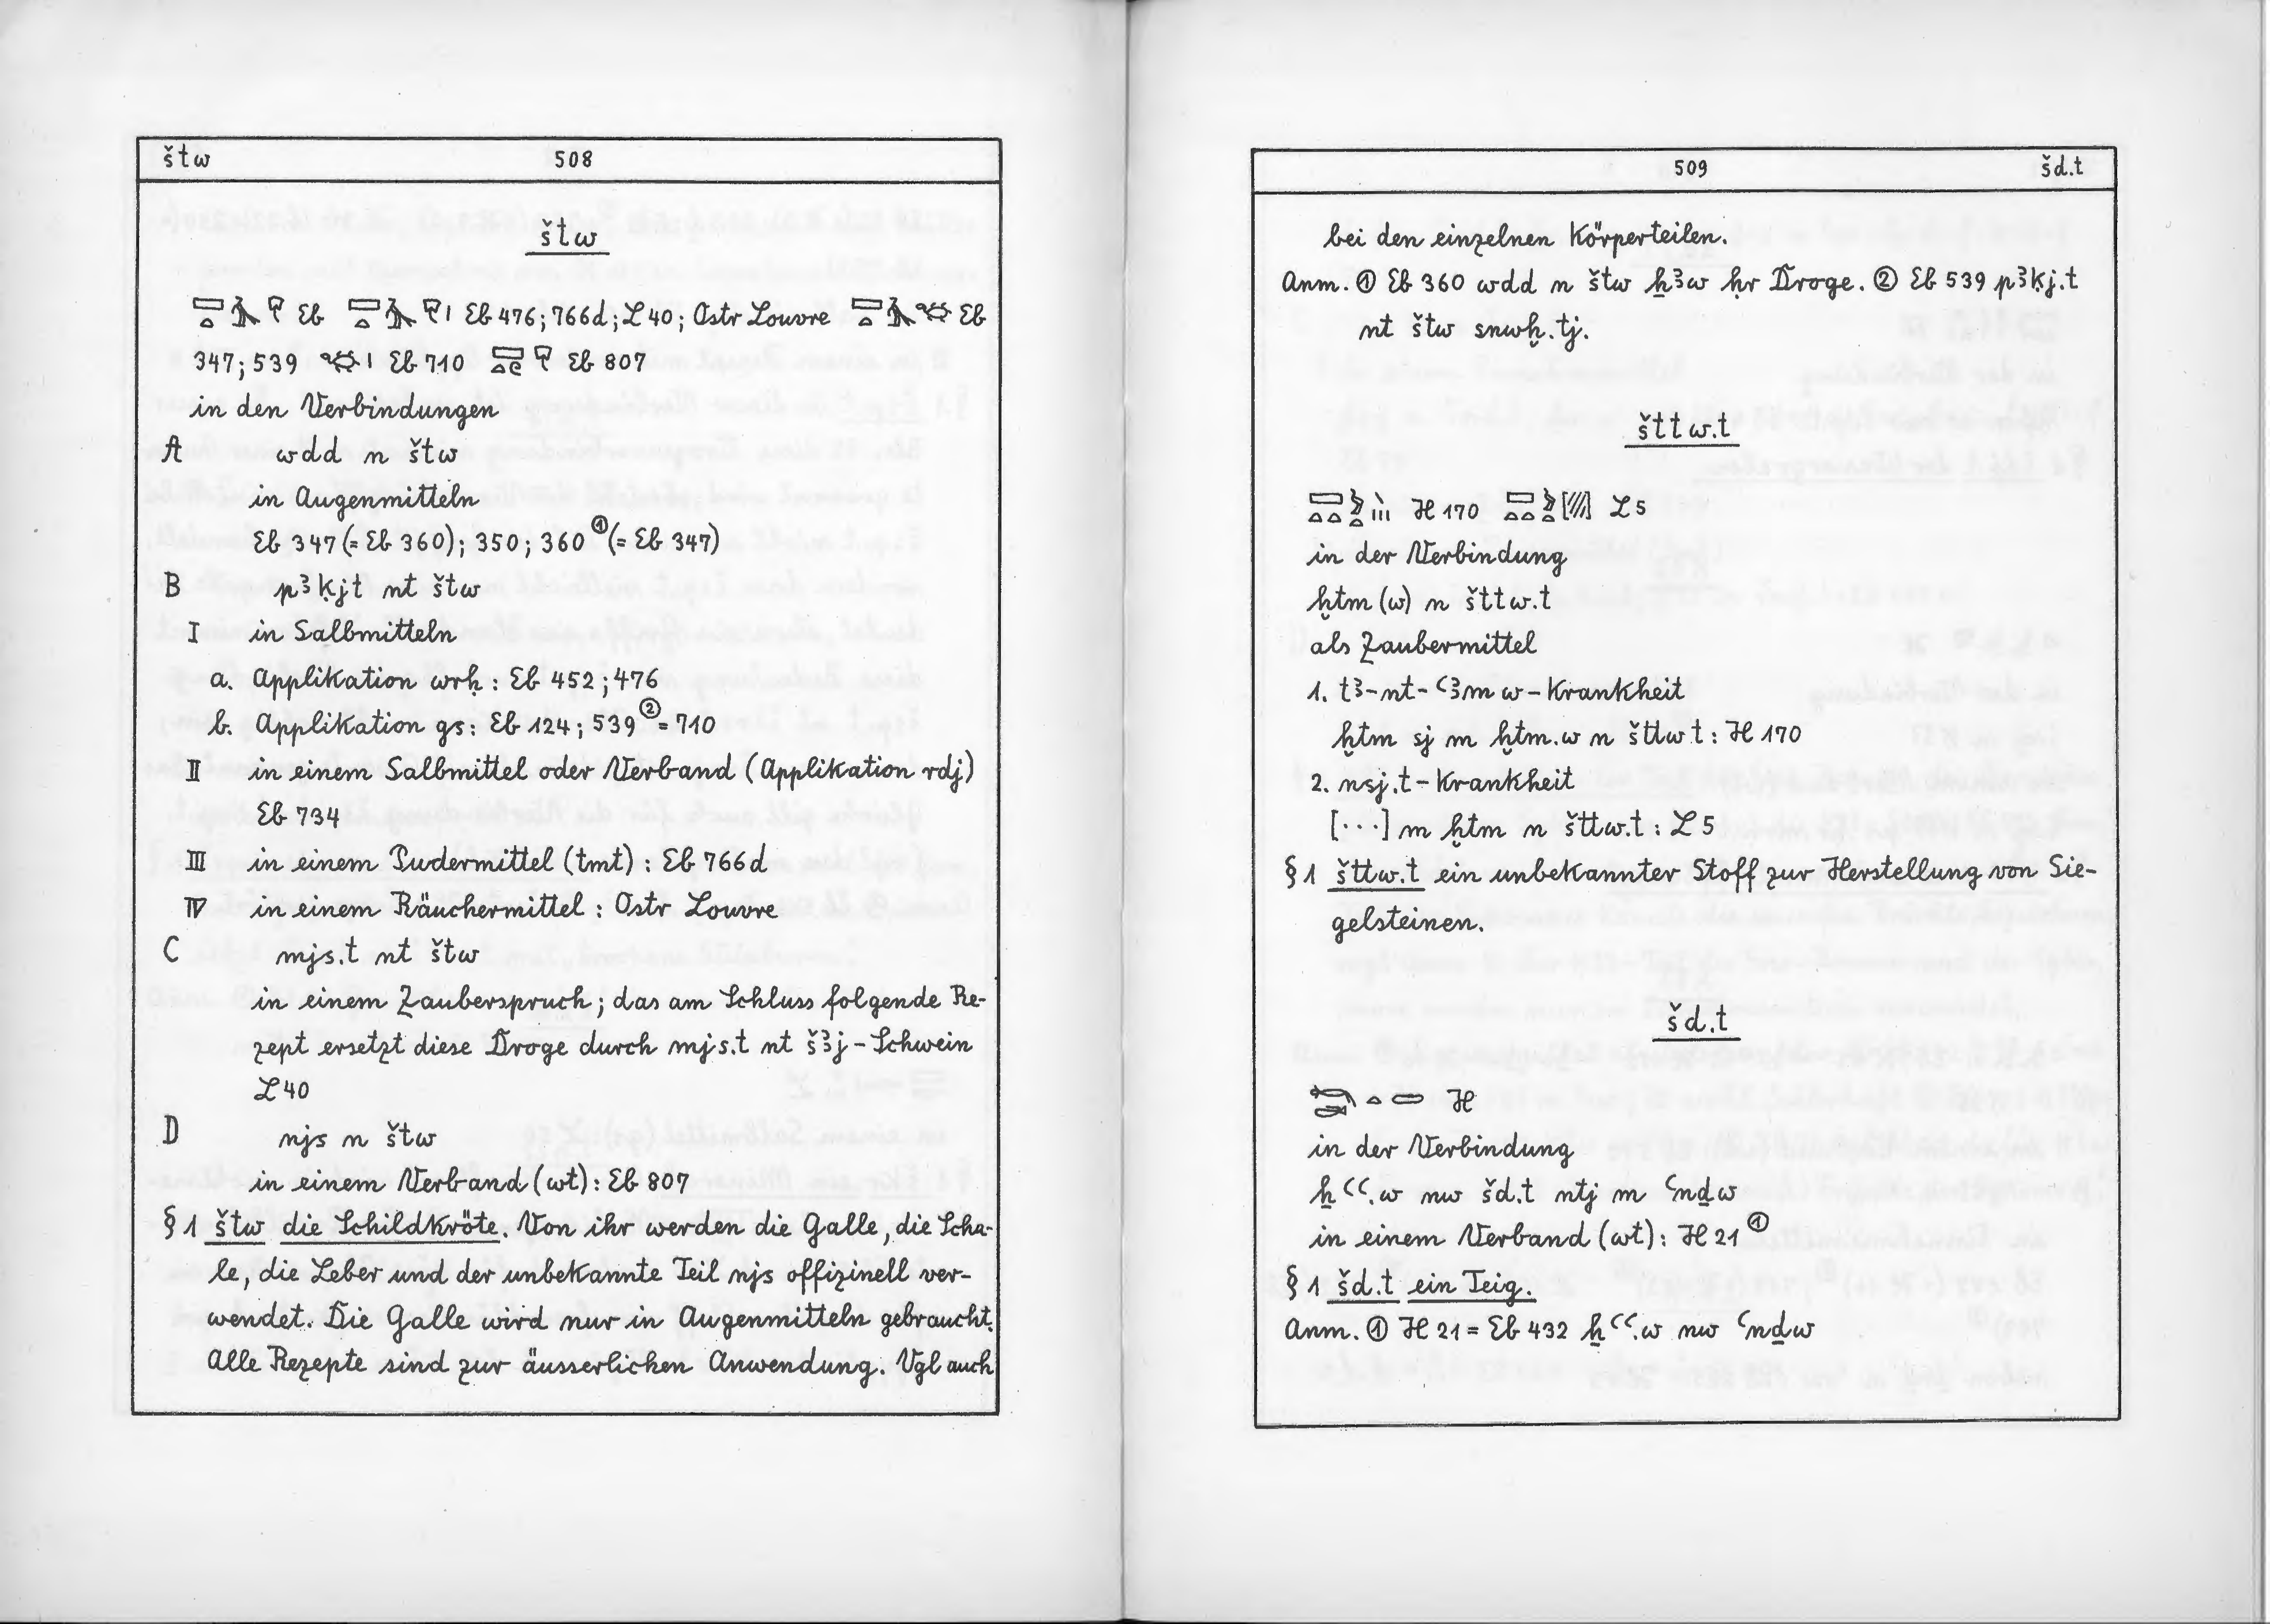 štw 508
štw
Eb Eb 476; 766d; L 40; Ostr Louvre Eb
347; 539 Eb 710 Eb 807
in den Verbindungen
A wdd n štw
in Augenmitteln
Eb 347 (= Eb 360); 350; 360 ①(= Eb 347)
B pꜣḳjt nt štw
I in Salbmitteln
a. Applikation wrḥ : Eb 452; 476
b. Applikation gs: Eb 124; 539 ② = 710
II in einem Salbmittel oder Verband (Applikation rdj)
Eb 734
III in einem Pudermittel (tmt) : Eb 766d
IV in einem Räuchermittel : Ostr Louvre
C mjs.t nt štw
in einem Zauberspruch; das am Schluss folgende Re-
zept ersetzt diese Droge durch mjs.t nt šꜣj-Schwein
L 40
D njs n štw
in einem Verband (wt): Eb 807
§ 1 štw die Schildkröte. Von ihr werden die Galle, die Scha-
le, die Leber und der unbekannte Teil njs offizinell ver-
wendet. Die Galle wird nur in Augenmitteln gebraucht.
Alle Rezepte sind zur äusserlichen Anwendung. Vgl auch
509 šd.t
bei den einzelnen Körperteilen.
Anm. ① Eb 360 wdd n štw ẖꜣw ḥr Droge. ② Eb 539 pꜣḳj.t
nt štw snwḫ.tj.
šttw.t
H 170 L 5
in der Verbindung
ḫtm (w) n šttw.t
als Zaubermittel
1. tꜣ-nt-ꜥꜣmw-Krankheit
ḫtm sj m ḫtm.w n šttwt : H 170
2. nsj.t-Krankheit
[...] m ḫtm n šttw.t : L 5
§ 1 šttw.t ein unbekannter Stoff zur Herstellung von Sie-
gelsteinen.
šd.t
H
in der Verbindung
ẖꜥꜥ.w nw šd.t ntj m ꜥnḏw
in einem Verband (wt): H 21 ①
§ 1 šd.t ein Teig.
Anm. ① H 21 = Eb 432 ẖꜥꜥ.w nw ꜥnḏw